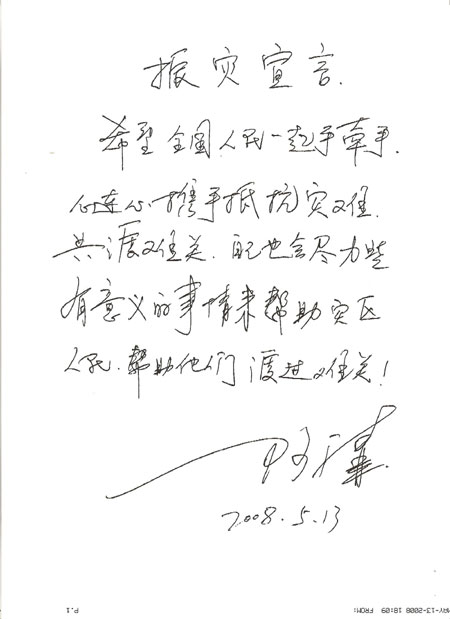 振灾宣言.
希望全国人民一起手牵手.
心连心携手抵抗灾难.
共渡难关.我也会尽力些
有意义的事情来帮助灾区
人民.帮助他们渡过难关!
2008.5.13
AY-13-2008 18:09 FROM: P.1